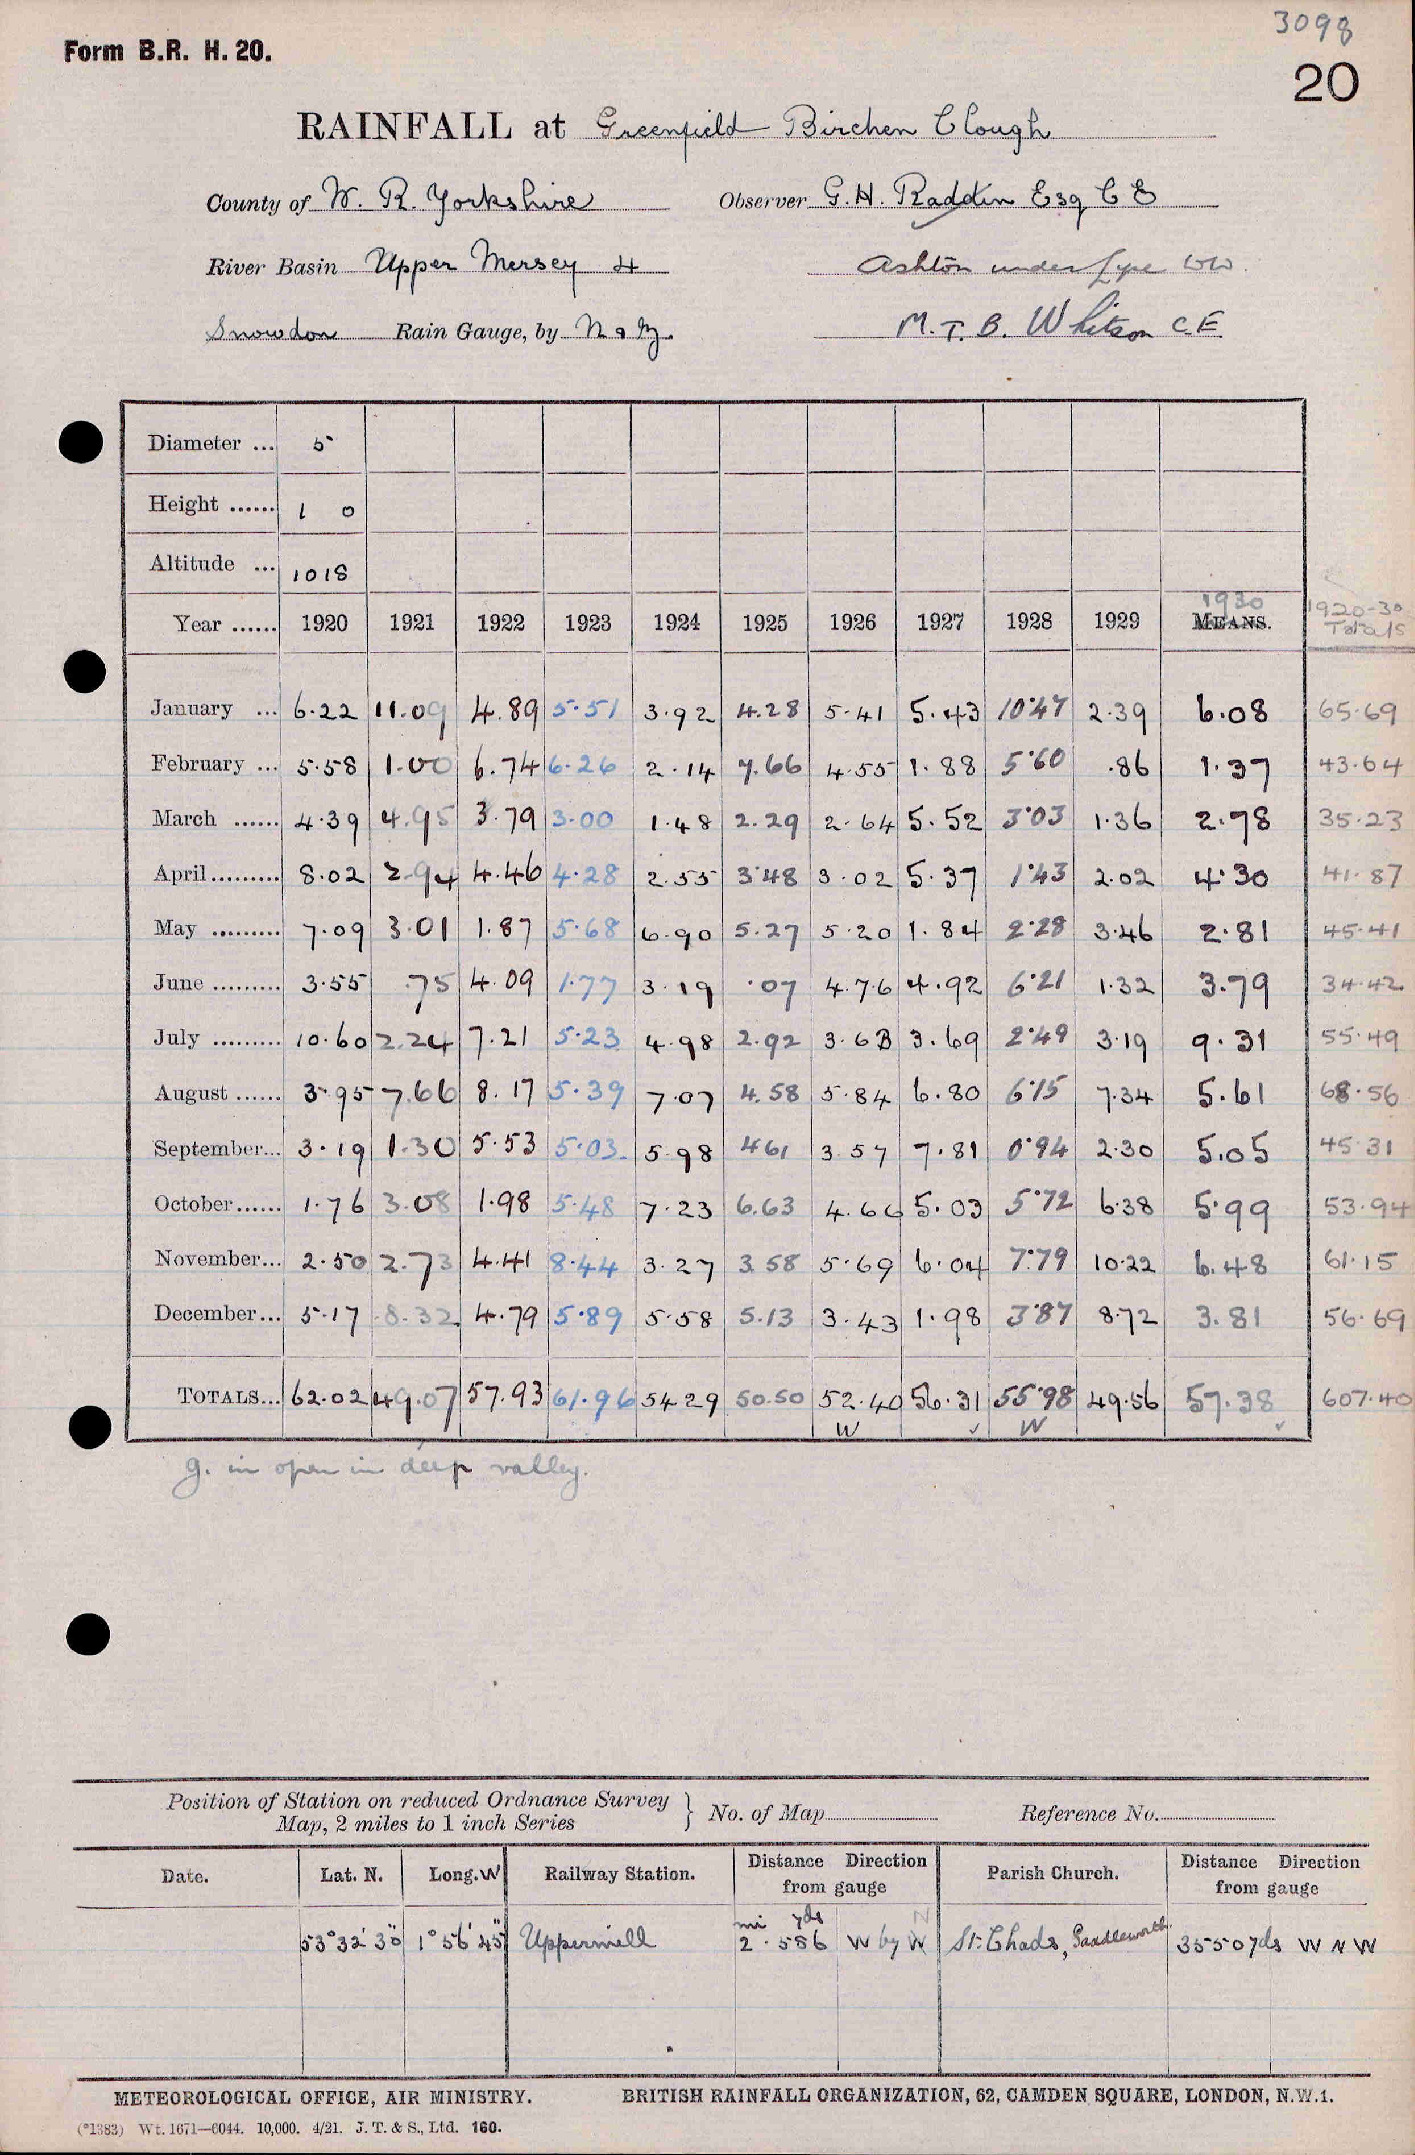 3098
Form B.R. H. 20.
20
RAINFALL at Greenfield Birchen Clough
County of W. R. Yorkshire Observer G. H. Raddin Esq C E
River Basin Upper Mersey 4 Ashton under Lyne WW
Snowdon Rain Gauge, by N & Z. M. T. B. Whitson C E
Diameter ... 5
Height ...... 1 0
Altitude ... 1018
Year ...... 1920 1921 1922 1923 1924 1925 1926 1927 1928 1929 MEANS. 1930 1920-30 Totals
January ... 6.22 11.09 4.89 5.51 3.92 4.28 5.41 5.43 10.47 2.39 6.08 65.69
February ... 5.58 1.00 6.74 6.26 2.14 7.66 4.55 1.88 5.60 .86 1.37 43.64
March ...... 4.39 4.95 3.79 3.00 1.48 2.29 2.64 5.52 3.03 1.36 2.78 35.23
April......... 8.02 2.94 4.46 4.28 2.55 3.48 3.02 5.37 1.43 2.02 4.30 41.87
May ......... 7.09 3.01 1.87 5.68 6.90 5.27 5.20 1.84 2.28 3.46 2.81 45.41
June ......... 3.55 .75 4.09 1.77 3.19 .07 4.76 4.92 6.21 1.32 3.79 34.42
July ......... 10.60 2.24 7.21 5.23 4.98 2.92 3.63 3.69 2.49 3.19 9.31 55.49
August ...... 3.95 7.66 8.17 5.39 7.07 4.58 5.84 6.80 6.15 7.34 5.61 68.56
September... 3.19 1.30 5.53 5.03 5.98 4.61 3.57 7.81 0.94 2.30 5.05 45.31
October...... 1.76 3.08 1.98 5.48 7.23 6.63 4.66 5.03 5.72 6.38 5.99 53.94
November... 2.50 2.73 4.41 8.44 3.27 3.58 5.69 6.04 7.79 10.22 6.48 61.15
December... 5.17 8.32 4.79 5.89 5.58 5.13 3.43 1.98 3.87 8.72 3.81 56.69
TOTALS... 62.02 49.07 57.93 61.96 54.29 50.50 52.40 56.31 55.98 49.56 57.38 607.40
W ✓ W ✓
g. in open in deep valley.
Position of Station on reduced Ordnance Survey
Map, 2 miles to 1 inch Series } No. of Map Reference No.
Date. Lat. N. Long. W Railway Station. Distance Direction from gauge Parish Church. Distance Direction from gauge
53° 32' 30" 1° 56' 45" Uppermill mi yds 2 . 586 W by N St. Chads, Saddleworth 3550 yds W N W
METEOROLOGICAL OFFICE, AIR MINISTRY. BRITISH RAINFALL ORGANIZATION, 62, CAMDEN SQUARE, LONDON, N.W.1.
(*1383) Wt. 1671—6044. 10,000. 4/21. J. T. & S., Ltd. 160.